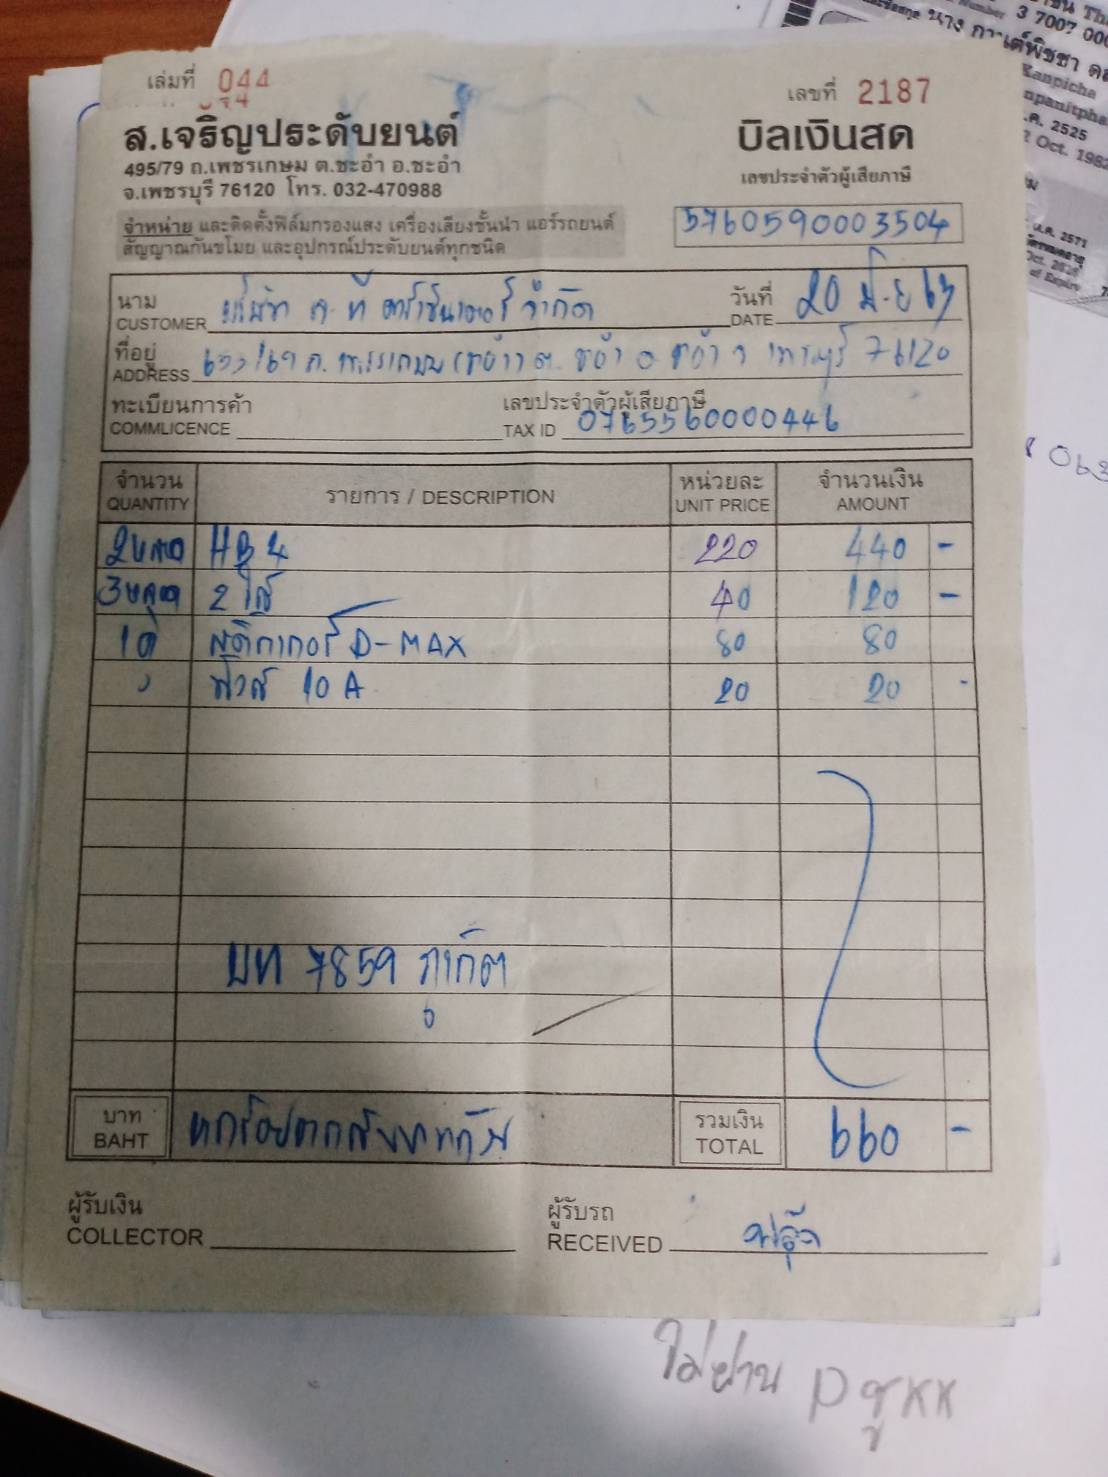 เล่มที่ 044
เลขที่ 2187
ส.เจริญประดับยนต์
บิลเงินสด
495/79 ถ.เพชรเกษม ต.ชะอำ อ.ชะอำ
จ.เพชรบุรี 76120 โทร. 032-470988
เลขประจำตัวผู้เสียภาษี
5760590003504
จำหน่าย และติดตั้งฟิล์มกรองแสง เครื่องเสียงชั้นนำ แอร์รถยนต์
สัญญาณกันขโมย และอุปกรณ์ประดับยนต์ทุกชนิด
นาม
CUSTOMER บริษัท จำกัด
วันที่
DATE 20 มิ.ย 63
ที่อยู่
ADDRESS 76120
ทะเบียนการค้า
COMMLICENCE
เลขประจำตัวผู้เสียภาษี
TAX ID 0765560000446
จำนวน QUANTITY รายการ / DESCRIPTION หน่วยละ UNIT PRICE จำนวนเงิน AMOUNT
2 HB4 220 440 -
3 2 ไส้ 40 120 -
1 สติกเกอร์ D-MAX 80 80
ฟิวส์ 10 A 20 20 -
บท 7859 ภูเก็ต
บาท
BAHT หกร้อยหกสิบบาทถ้วน
รวมเงิน
TOTAL 660 -
ผู้รับเงิน
COLLECTOR
ผู้รับรถ
RECEIVED
ไม่ผ่าน
3 7007
นาง
Kanpicha
2525
Oct. 1982
2571
of Expiry